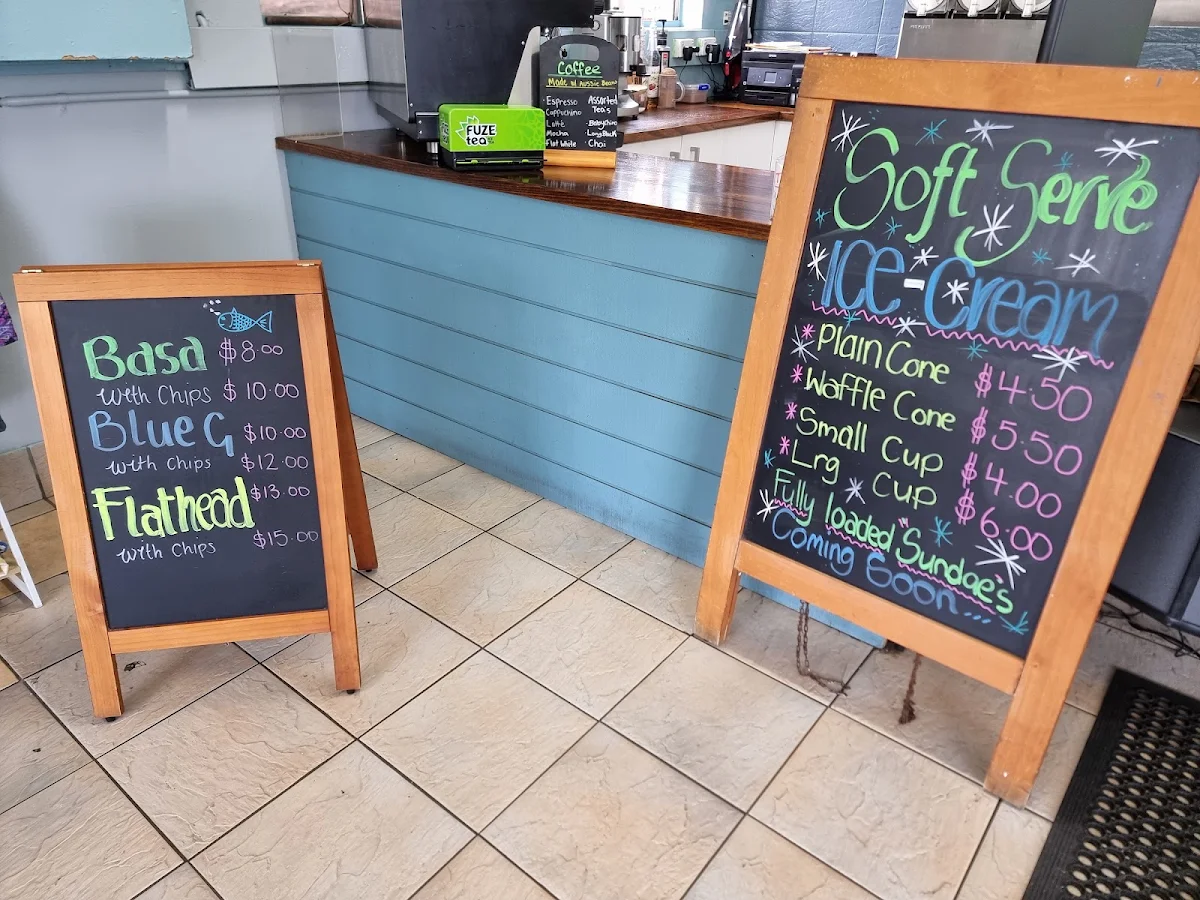 Basa $8.00
with Chips $10.00
Blue G $10.00
with chips $12.00
Flathead $13.00
with chips $15.00
FUZE
tea
Coffee
Made w/ Aussie Beans
Espresso Assorted
Cappuchino Tea's
Latte Babychino
Mocha Long Black
Flat White Chai
Soft Serve
ICE-Cream
Plain Cone $4.50
Waffle Cone $5.50
Small Cup $4.00
Lrg Cup $6.00
Fully loaded "Sundae's
Coming Soon....